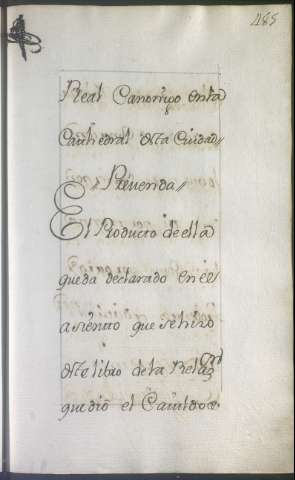 485
Real Canonigo en la
Cathedral desta Ciudad//
Prevenda//
El Producto de ella
queda declarado en el
asiento que se hizo
deste libro de la Relazon
que dió el Cavildo